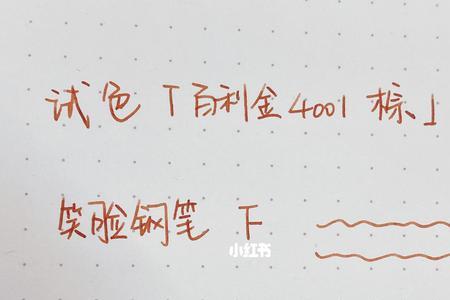 试色「百利金4001 棕」
笑脸钢笔 F
小红书